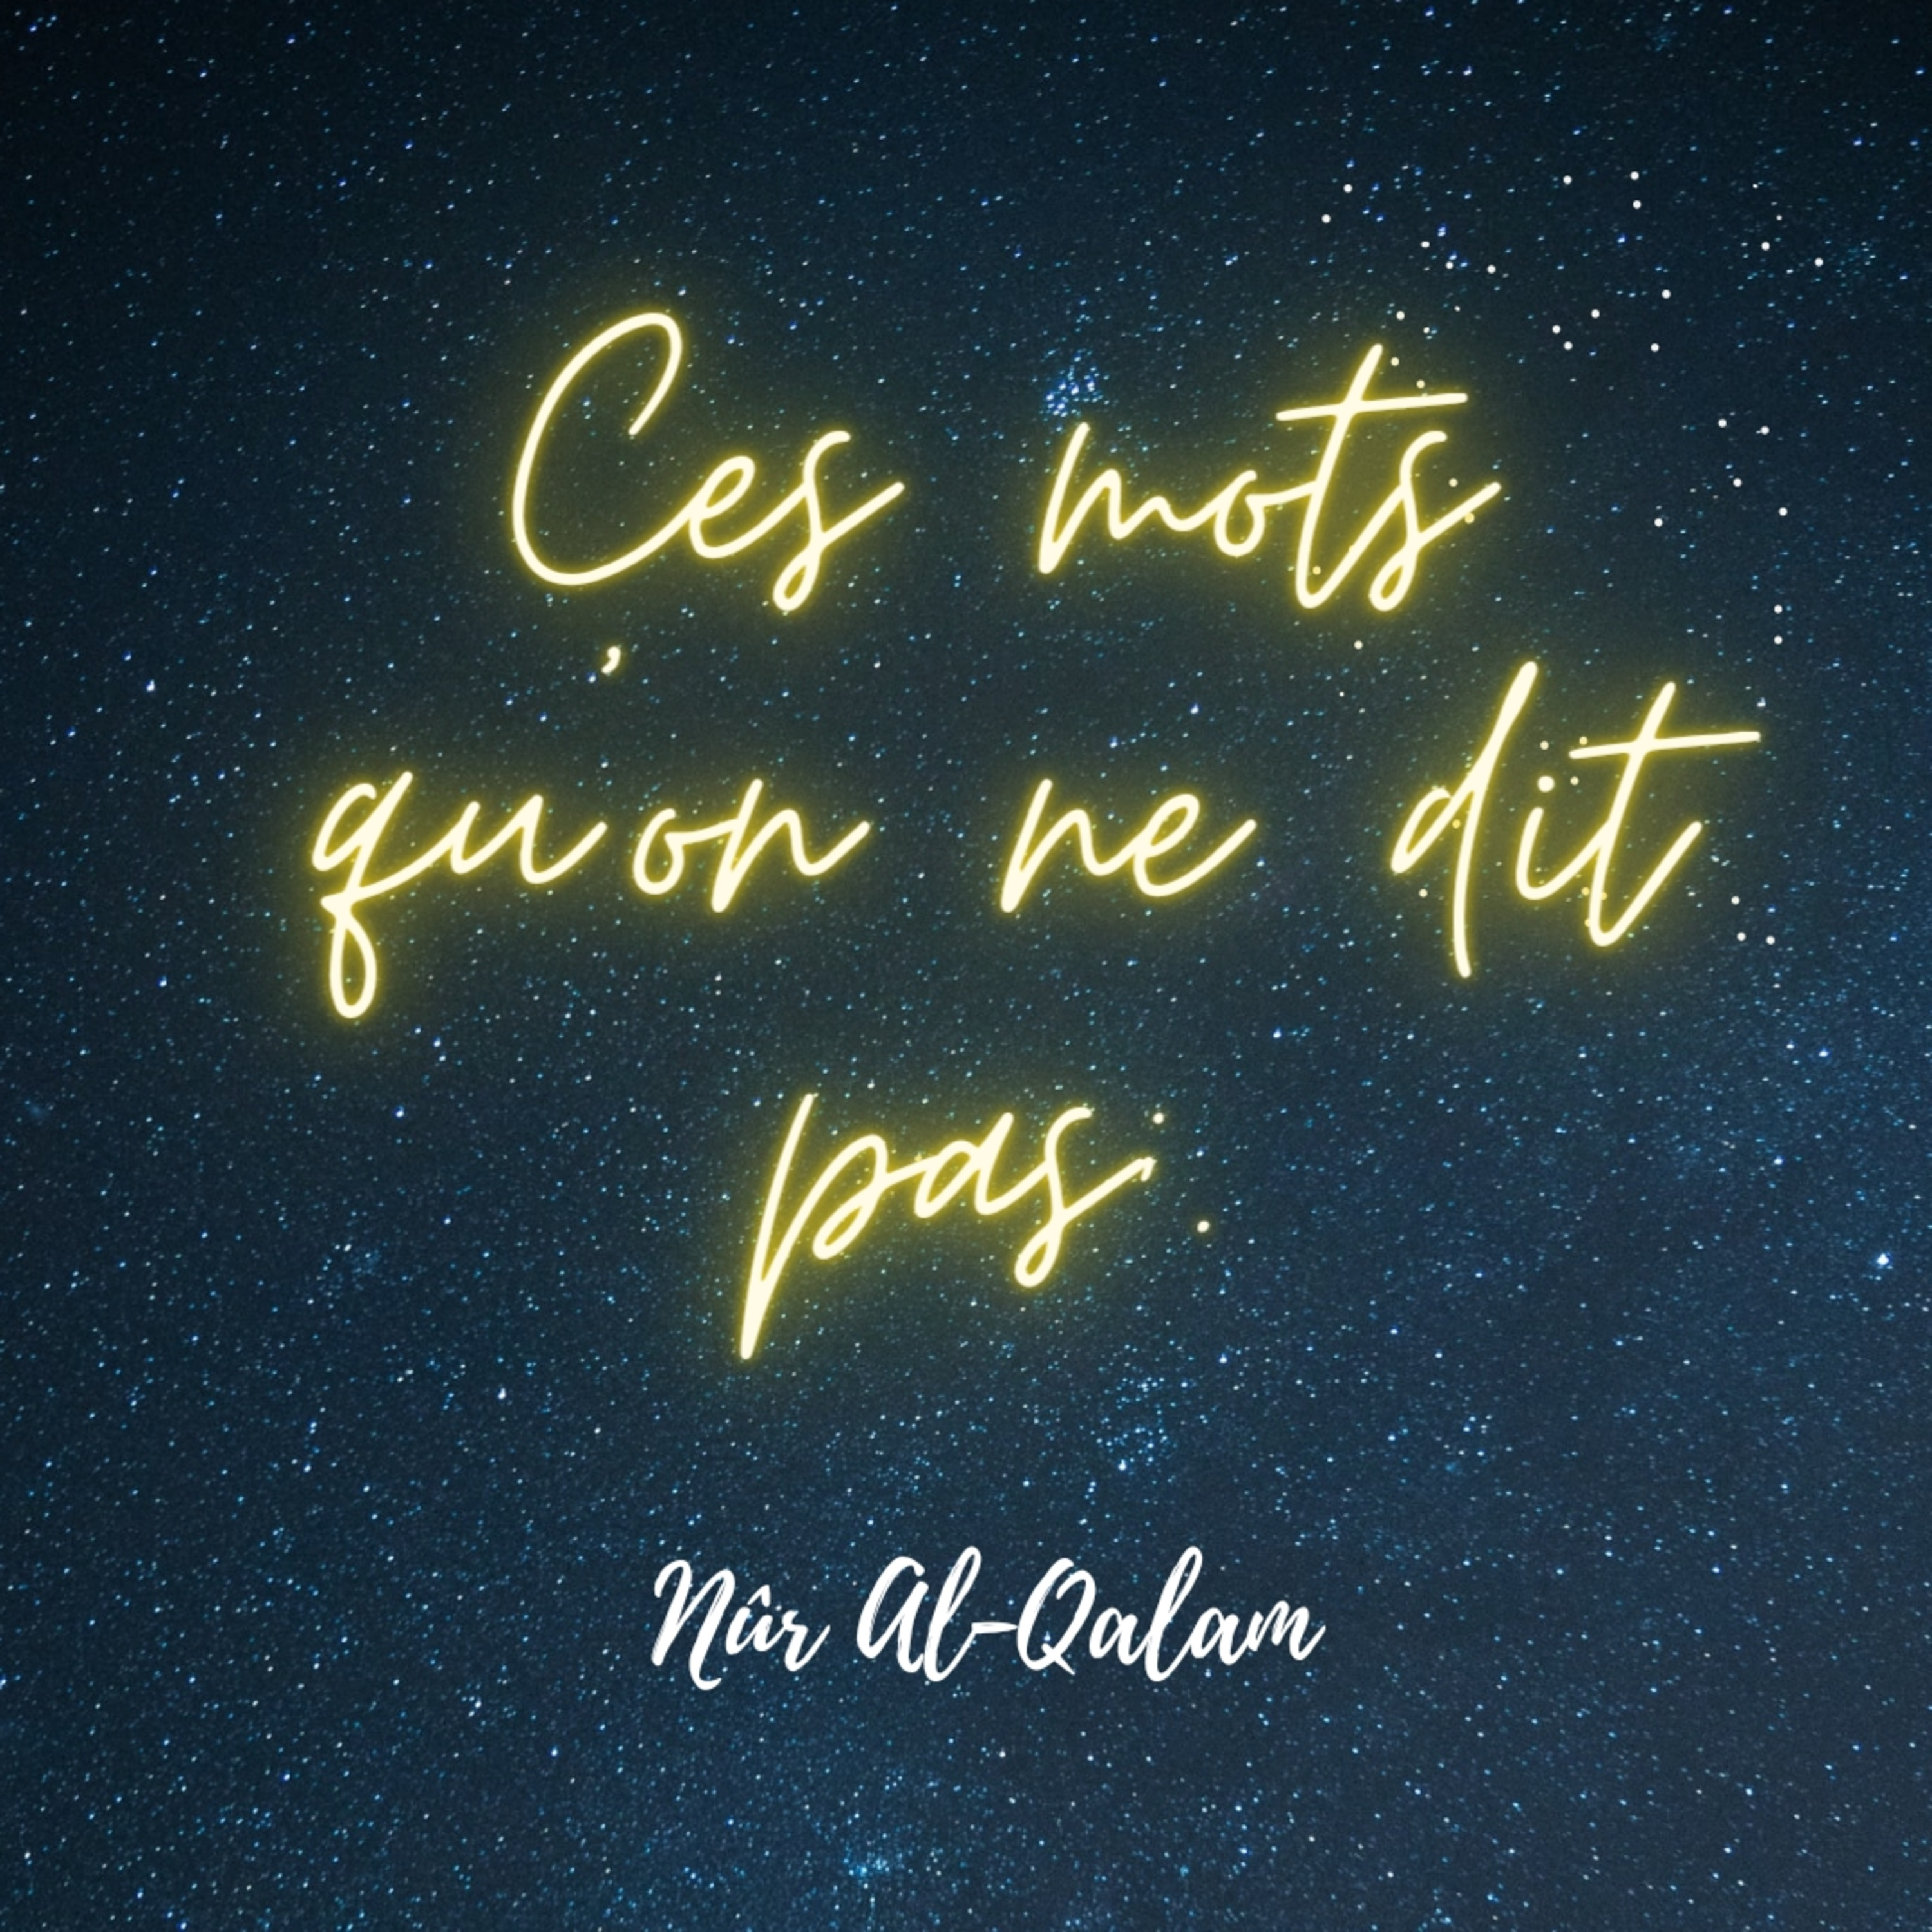 Ces mots
qu'on ne dit
pas.
Nûr Al-Qalam